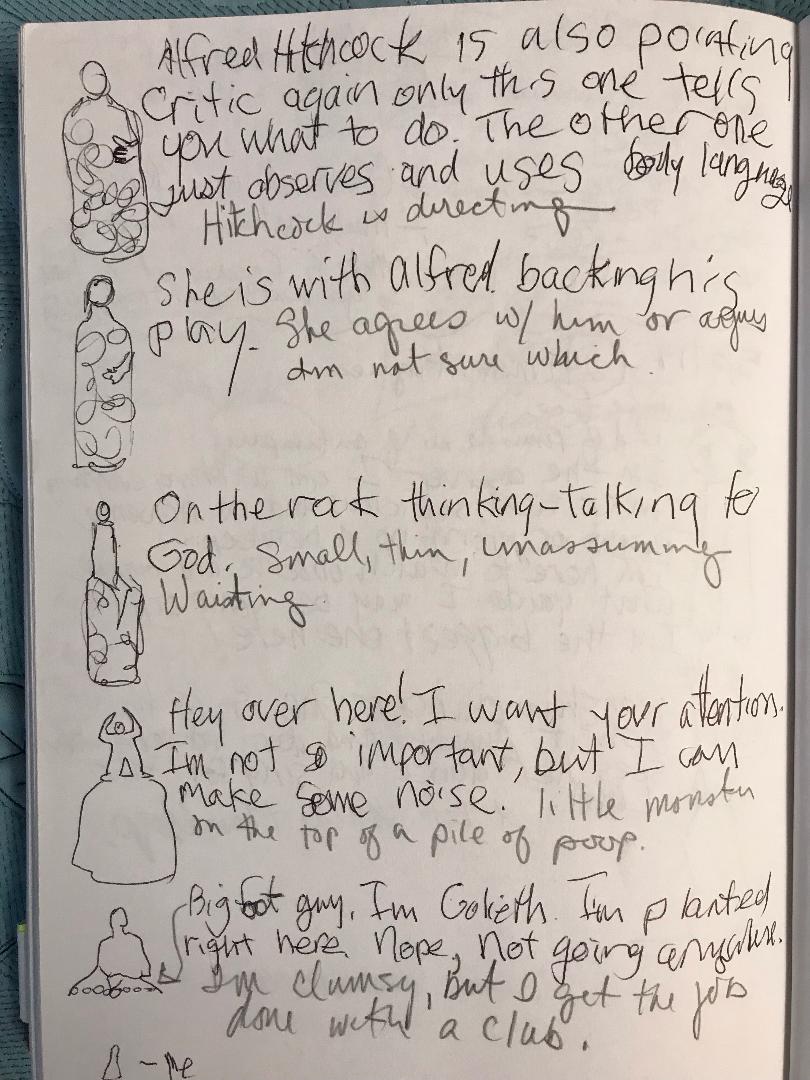 Alfred Hitchcock is also pointing
Critic again only this one tells
you what to do. The other one
just observes and uses body language
Hitchcock is directing
She is with Alfred backing his
play. She agrees w/ him or argues
Am not sure which.
On the rock thinking-talking to
God. Small, thin, unassuming
Waiting
Hey over here! I want your attention.
I'm not so important, but I can
make some noise. little monster
on the top of a pile of poop.
Big foot guy, I'm Golieth. I'm planted
right here. Nope, not going anywhere.
I'm clumsy, but I get the job
done with a club.
- Me